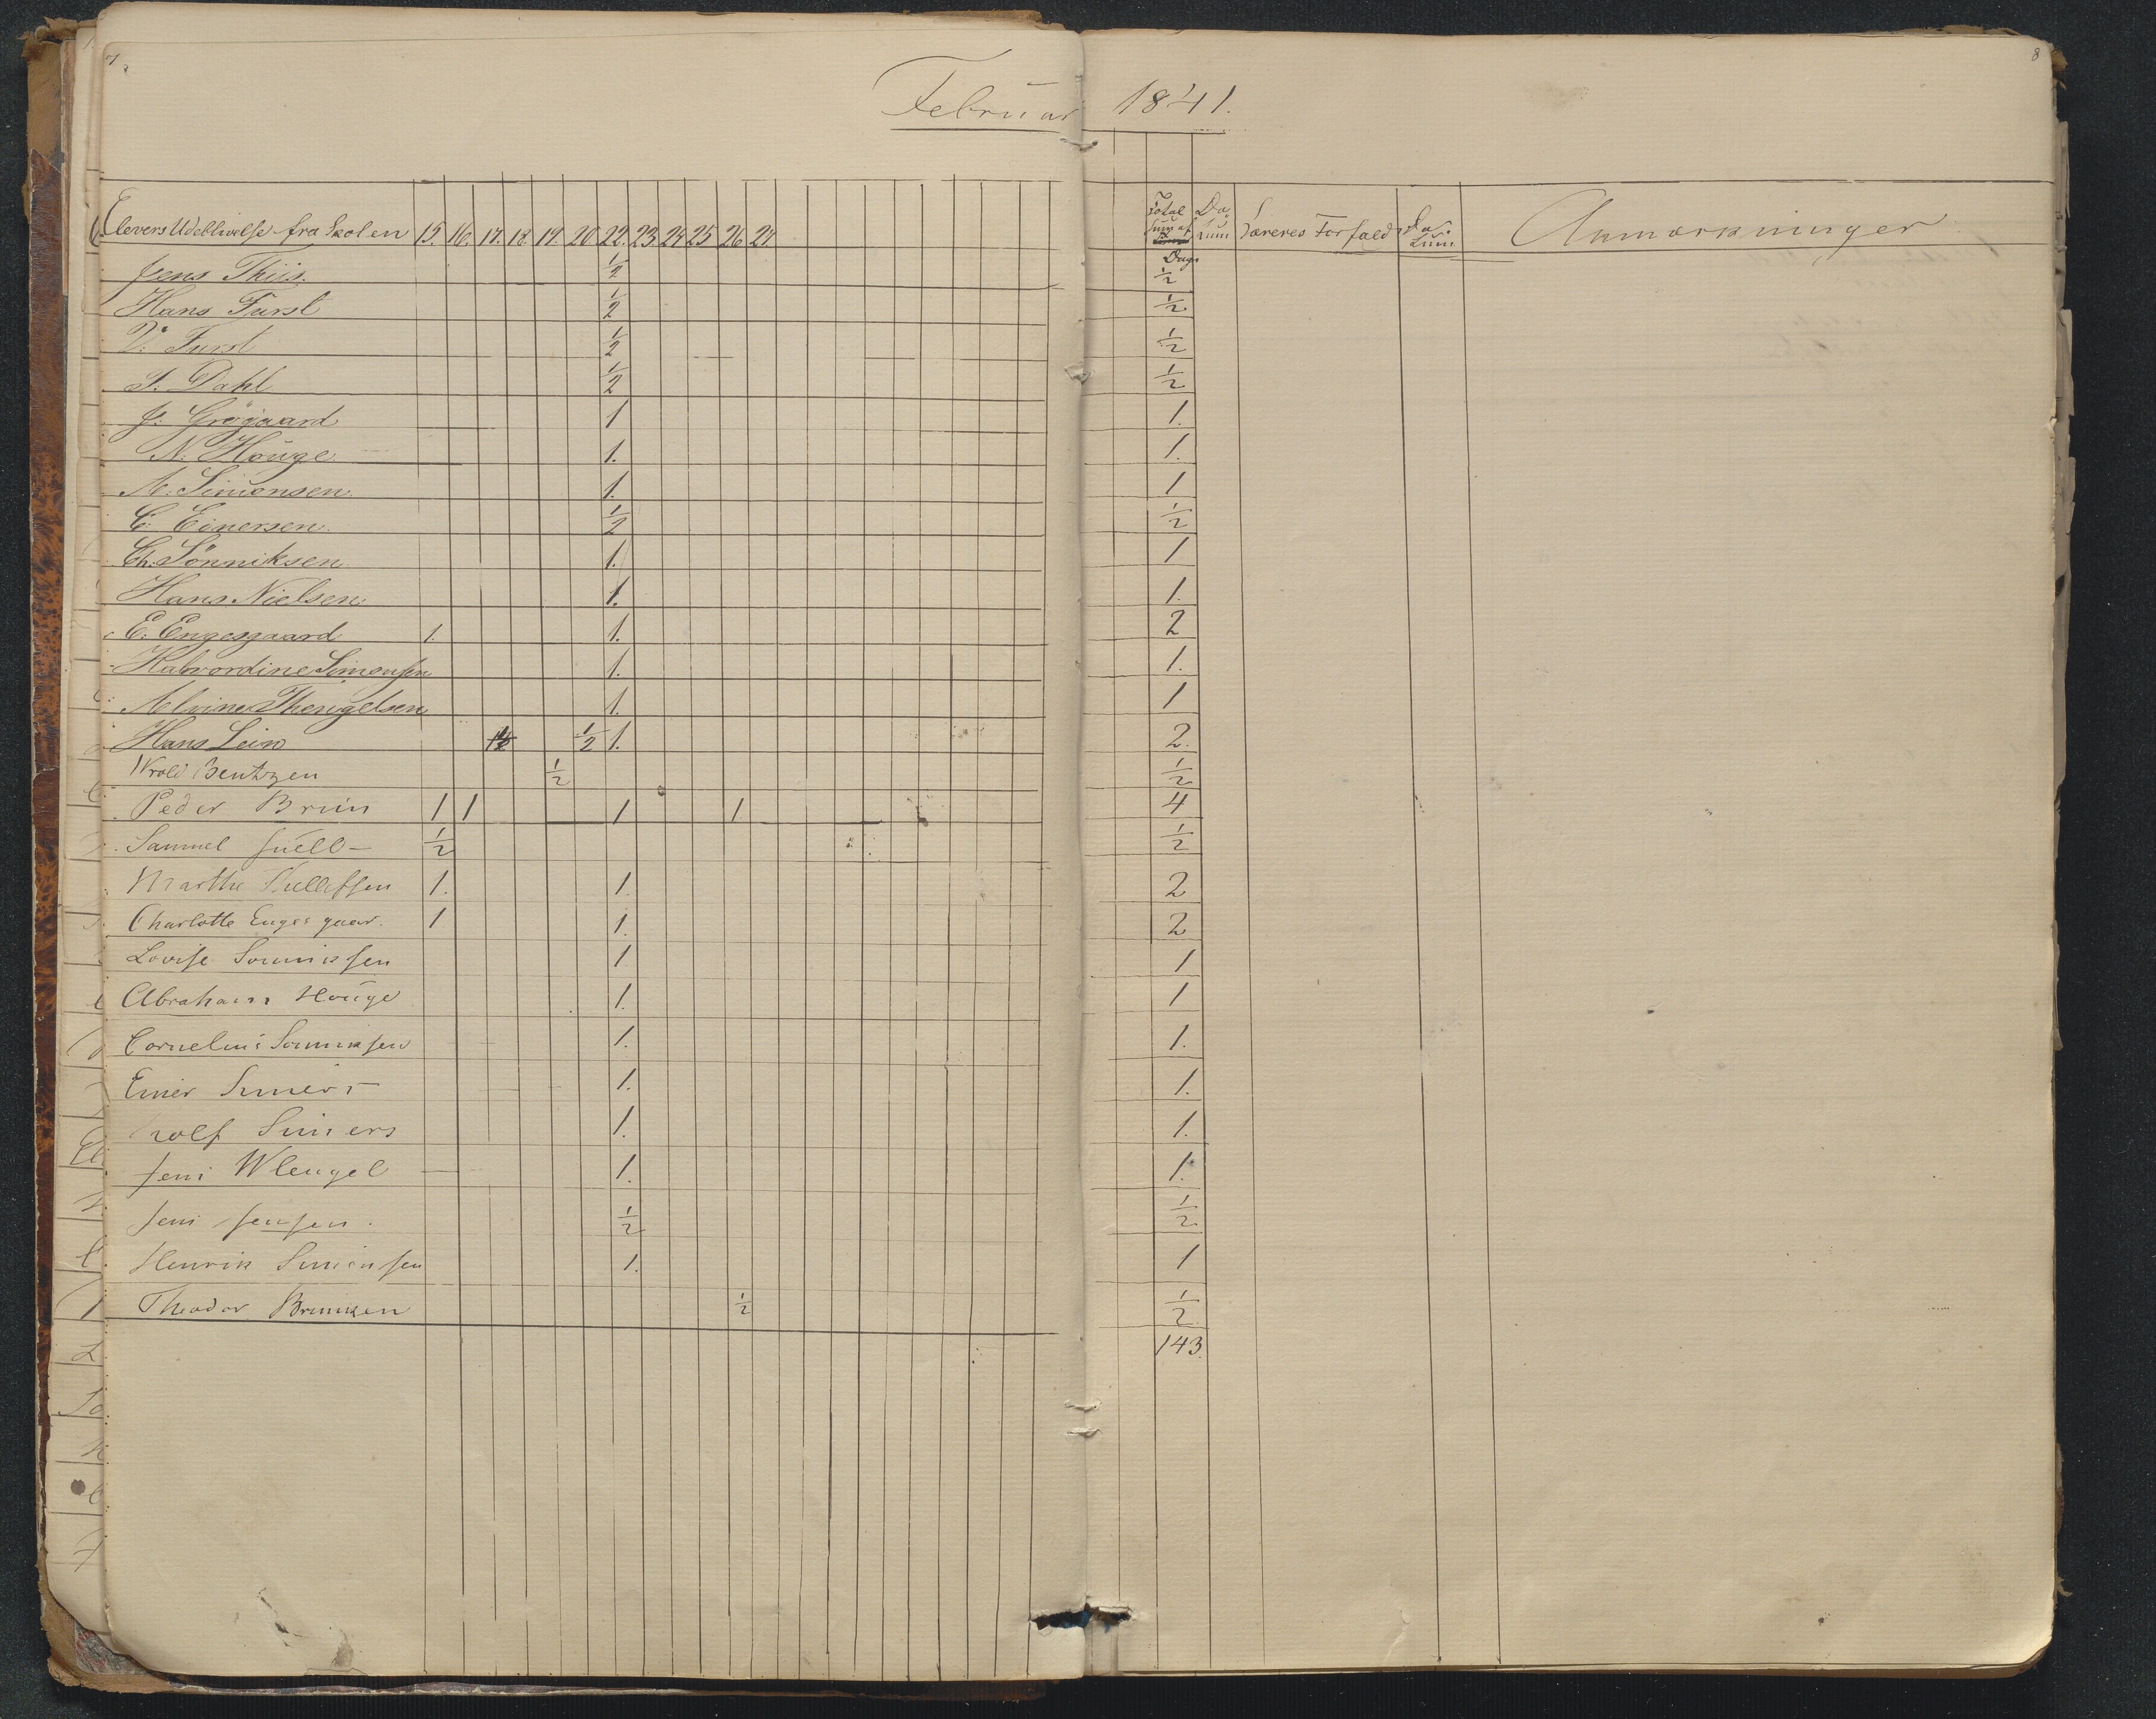 7.
8
Februar 1841.
Elevers Udeblivelse fra Skolen 15. 16. 17. 18. 19. 20. 22. 23. 24 25 26 27. Total Sum af Dage Datum Læreres Forfald Datum Anmærkninger
Jens Thiis. ½ ½
Hans Furst ½ ½
D: Furst ½ ½
S. Dahl ½ ½
J: Grögaard 1 1.
N: Houge 1. 1.
M: Simonsen. 1. 1
C: Einersen. ½ ½
Ch. Sönniksen 1. 1
Hans Nielsen 1. 1.
E: Engesgaard 1. 1. 2
Halvordine Simonsen 1. 1.
Alvine Thengelsen 1. 1
Hans Lein ½ ½ 1. 2.
Bentzen ½ ½
Peder Brun 1 1 1 1 4
Samuel Juell ½ ½
Marthe Tellefsen 1. 1. 2
Charlotte Engesgaar. 1 1. 2
Lovise Sonniksen 1 1
Abraham Houge 1. 1
Cornelius Sonniksen 1. 1.
Einer Siners 1. 1.
Rolf Siners 1. 1.
Jens Wlengel 1. 1.
Jens Jensen. ½ ½
Henrik Simonsen 1. 1
Theodor Brunsen ½ ½
143.